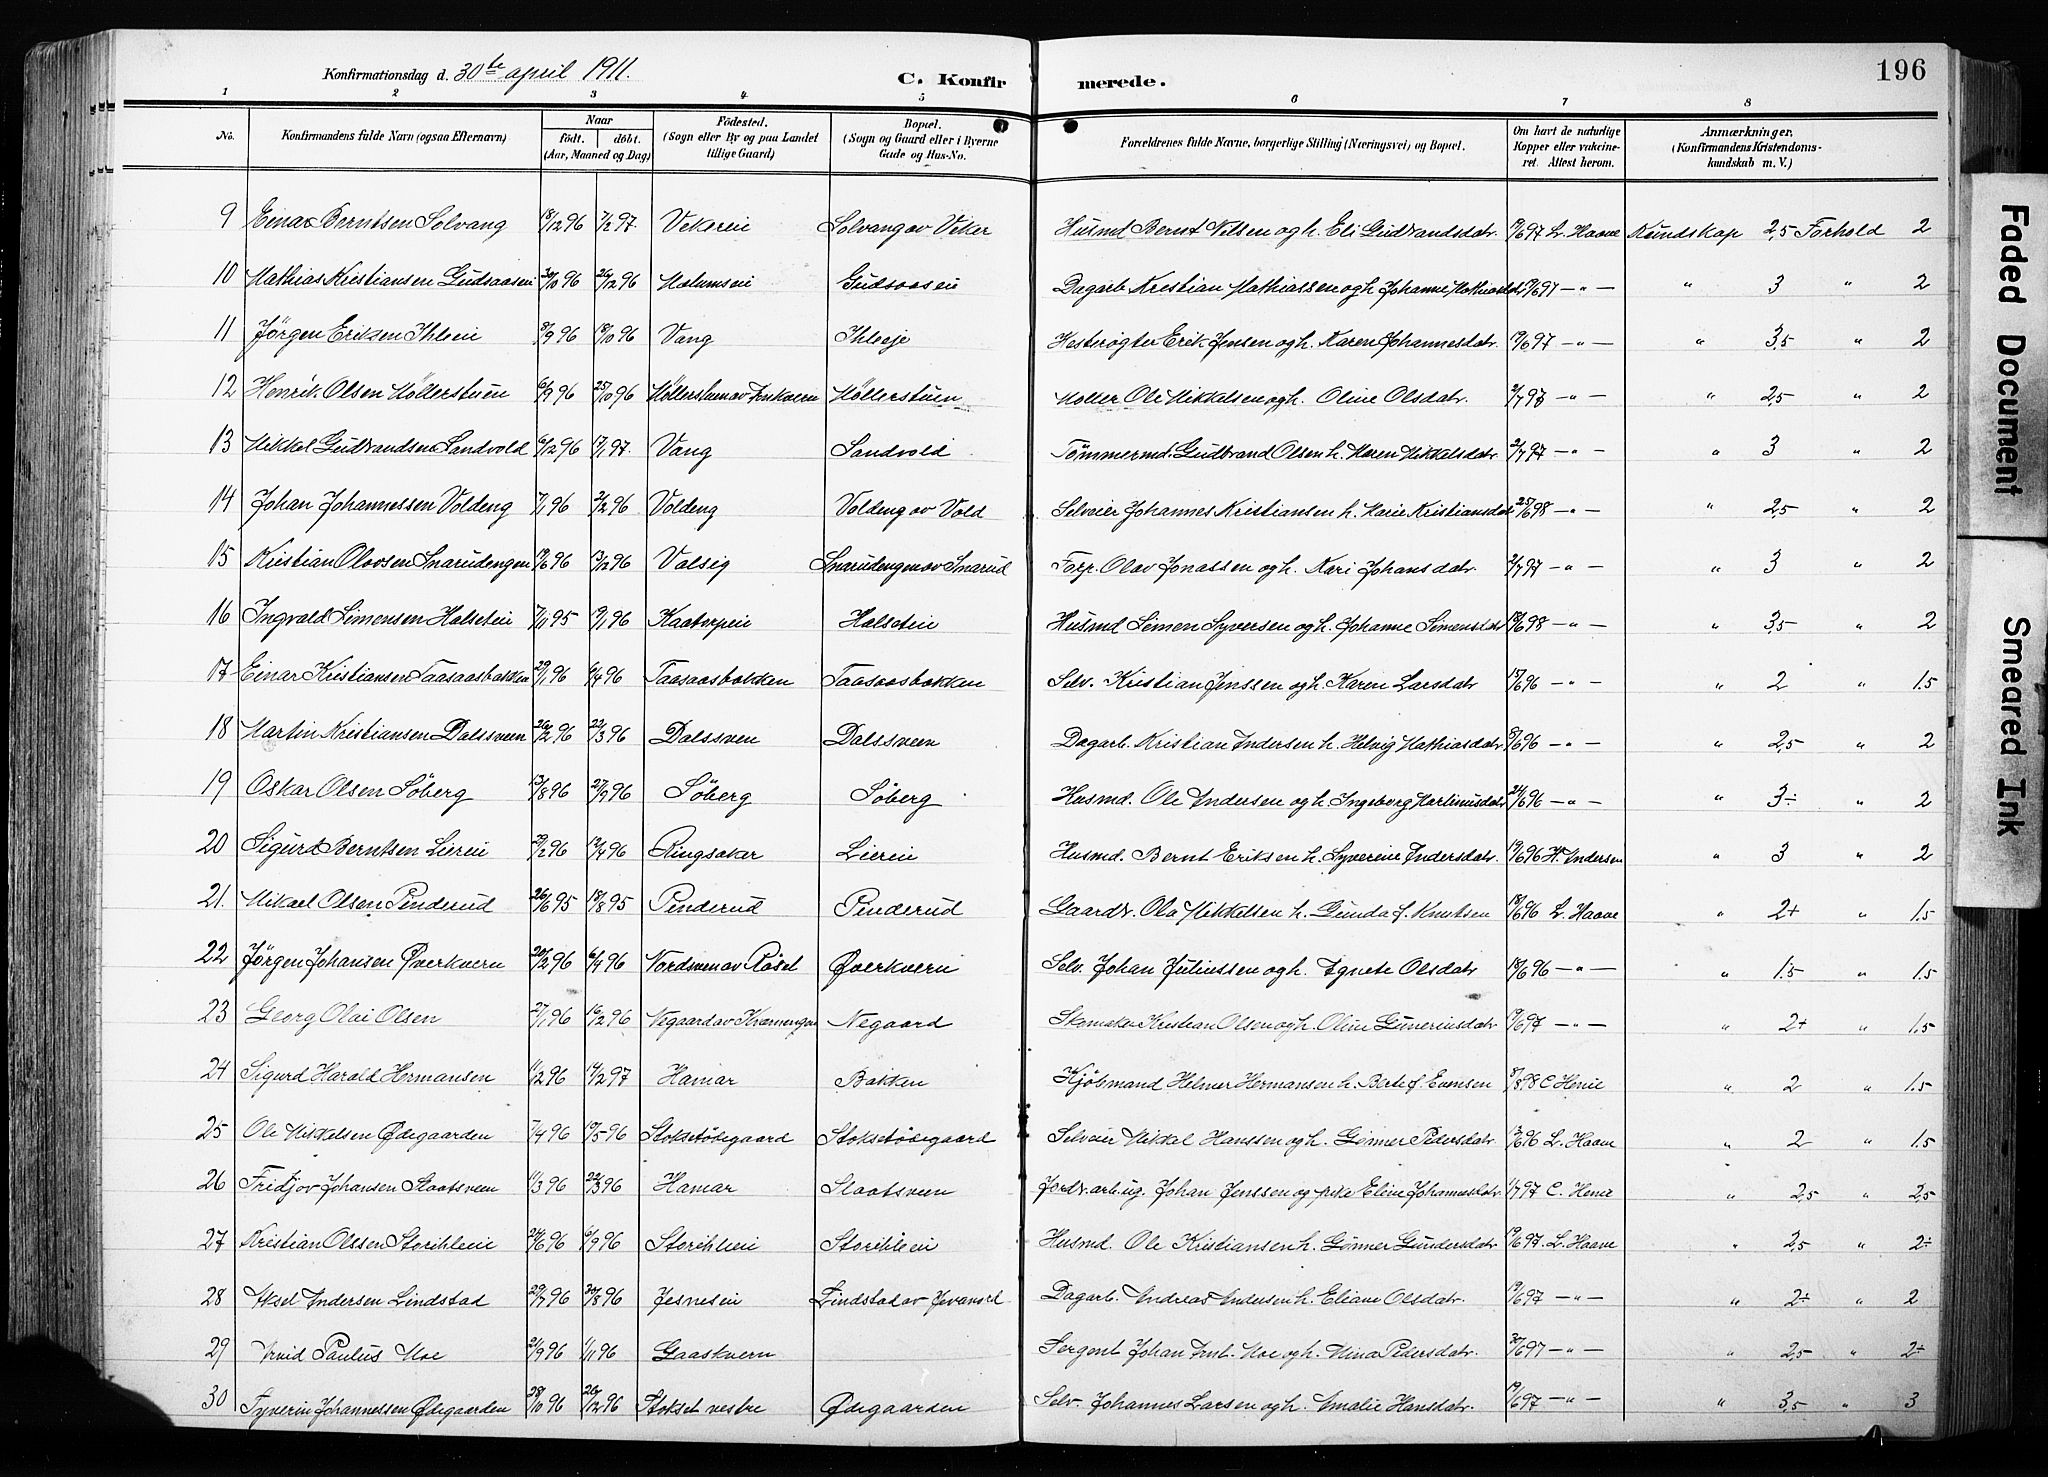 196
Konfirmationsdag d. 30te april 1911.
C. Konfirmerede.
1 2 3 4 5 6 7 8
No. Konfirmandens fulde Navn (ogsaa Efternavn) Naar født. døbt. (Aar, Maaned og Dag) Fødested. (Sogn eller By og paa Landet tillige Gaard) Bopæl. (Sogn og Gaard eller i Byerne Gade og Hus-No. Forældrenes fulde Navne, borgerlige Stilling (Næringsvei) og Bopæl. Om havt de naturlige Kopper eller vakcineret. Attest herom. Anmærkninger. (Konfirmandens Kristendomskundskab m. V.)
9 Einar Berntsen Solvang 18/12 96 7/2 97. Vekereie Solvang av Veker Husmd Bernt Nilsen og h. Eli Gudbrandsdatr. 19/6 97 L. Haave Kundskap 2,5 Forhold 2
10 Mathias Kristiansen Gudsaaseie 30/10 96 26/12 96 Molumseie Gudsaaseie Dagarb. Kristian Mathiassen og h. Johanne Mathiasdtr 19/6 97 — " — " 3 " 2
11 Jørgen Eriksen Ihleeie 8/9 96 18/10 96 Vang Ihleeje Hesterøgter Erik Jensen og h. Karen Johannesdatr. 19/6 97 — " — " 3,5 " 2
12 Henrik Olsen Møllerstuen 6/9 96 25/10 96 Møllerstuen av Finkvern Møllerstuen Møller Ole Mikkelsen og h. Oline Olsdatr. 2/7 97 — " — " 2,5 " 2
13 Mikkel Gudbrandsen Sandvold 6/12 96 17/1 97. Vang Sandvold Tømmermd. Gudbrand Olsen h. Maren Mikkelsdatr 2/7 97 — " — " 3 " 2
14 Johan Johannessen Voldeng 7/1 96 2/2 96 Voldeng Voldeng av Vold Selveier Johannes Kristiansen h. Marie Kristiansdatr 25/6 98 — " — " 2,5 " 2
15 Kristian Olavsen Snarudengen 19/6 96 13/12 96 Valsig Snarudengen av Snarud Forp. Olav Jonassen og h. Kari Johansdatr. 2/7 97 — " — " 3 " 2
16 Ingvald Simensen Halseteie 7/11 95 19/1 96 Kaatorpeie Halseteie Husmd Simen Syversen og h. Johanne Simensdtr 18/6 98 — " — " 3,5 " 2
17 Einar Kristiansen Taasaasbakken 29/1 96 6/4 96 Taasaasbakken Taasaasbakken Selv. Kristian Jenssen og h. Karen Larsdatr 15/6 96 — " — " 2 " 1.5
18 Martin Kristiansen Dalssveen 26/2 96 22/3 96 Dalssveen Dalssveen Dagarb. Kristian Andersen h. Helvig Mathiasdatr 8/6 96 — " — " 2,5 " 2
19 Oskar Olsen Søberg 13/8 96 27/9 96 Søberg Søberg Husmd. Ole Andersen og h. Ingeborg Martinusdatr 24/6 96 — " — " 3÷ " 2
20 Sigurd Berntsen Liereie 29/2 96 12/4 96 Ringsaker Liereie Husmd. Bernt Eriksen h. Syverine Andersdatr. 19/6 96 H. Andersen " 3 " 2
21. Mikael Olsen Penderud 26/6 95 18/8 95 Penderud Penderud Gaardbr. Ola Mikkelsen h. Gunda f. Knutsen 18/6 96 L. Haave " 2+ " 1.5
22 Jørgen Johansen Øverkvern 20/2 96 6/4 96 Nordsveen av Røsel Øverkvern Selv. Johan Juliussen og h. Agnete Olsdatr 18/6 96 — " — " 1.5 " 1.5
23 Georg Olai Olsen 27/1 96 16/2 96 Negaard av Kværnengen Negaard Skomaker Kristian Olsen og h. Oline Guneriusdatr 19/6 97 — " — " 2+ " 1.5
24 Sigurd Harald Hermansen 11/12 96 14/2 97 Hamar Bakken Kjøbmand Helmer Hermansen h. Berte f. Evensen 8/8 98 C Henie " 2 " 1.5
25 Ole Mikkelsen Ødegaarden 7/4 96 10/5 96 Stoksetødegaard Stoksetødegaard Selveier Mikkel Hanssen og h. Gønner Pedersdatr 13/6 96 L. Haave " 2 " 1.5
26 Fridjov Johansen Staatsveen 11/3 96 22/3 96 Hamar Staatsveen Jordv. arb. ug. Johan Jenssen og pike Eline Johannesdatr 1/7 97 C. Henie " 2,5 " 2,5
27 Kristian Olssen Storihleeie 24/6 96 6/9 96 Storihleeie Storihleeie Husmd. Ole Kristiansen h. Gønner Gundersdatr 19/6 97. L. Haave " 2,5 " 2÷
28 Aksel Andersen Lindstad 29/7 96 30/8 96 Jesneseie Lindstad av Jevanord Dagarb. Andreas Andersen h. Eliane Olsdatr. 19/6 97 — " — " 2÷ " 2
29 Arvid Paulus Moe 21/9 96 1/11 96 Gaaskvern Sergent Johan Ant. Moe og h. Mina Pedersdatr. 30/6 97 — " — " 2,5 " 2÷
30 Syverin Johannessen Ødegaarden 28/10 96 26/12 96 Stokset vestre Ødegaarden Selv. Johannes Larsen og h. Amalie Hansdatr. 19/6 97 — " — " 3,5 " 3
Faded Document
Smeared Ink